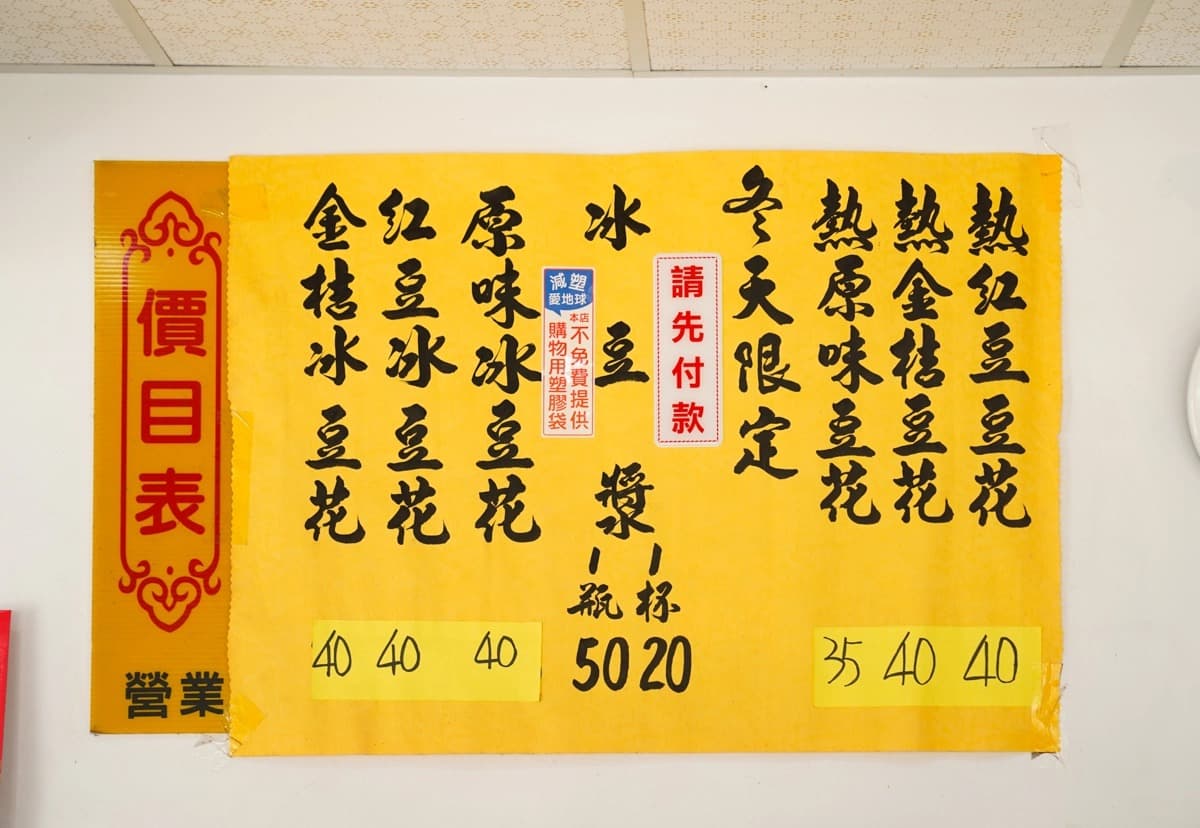 熱紅豆豆花
40
熱金桔豆花
40
熱原味豆花
35
冬天限定
請先付款
冰豆漿
1杯
20
1瓶
50
減塑
愛地球
本店不免費提供
購物用塑膠袋
原味冰豆花
40
紅豆冰豆花
40
金桔冰豆花
40
價目表
營業